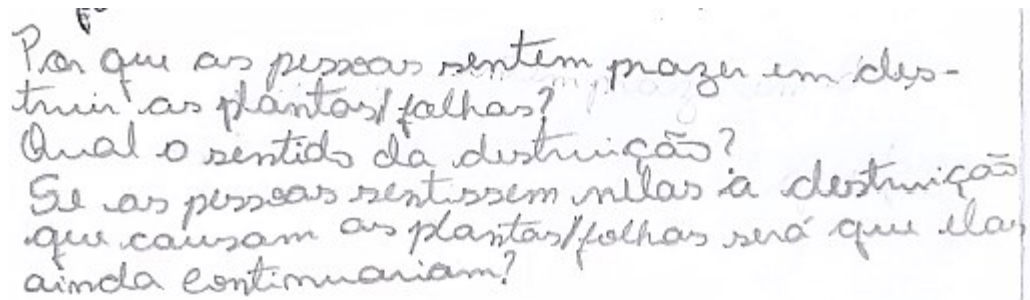 Por que as pessoas sentem prazer em des-
truir as plantas/folhas?
Qual o sentido da destruição?
Se as pessoas sentissem nelas a destruição
que causam as plantas/folhas será que elas
ainda continuariam?